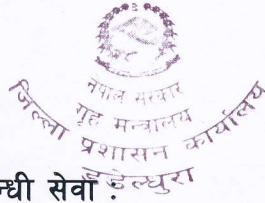 नेपाल सरकार
गृह मन्त्रालय
जिल्ला प्रशासन कार्यालय
डडेल्धुरा
न्धी सेवा :